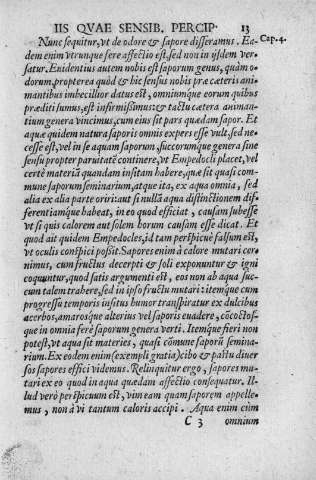 IIS QVAE SENSIB. PERCIP. 13
Nunc sequitur, vt de odore & sapore disseramus. Ea- Cap.4.
dem enim vtrunque fere affectio est, sed non in ijsdem ver-
satur. Euidentius autem nobis est saporum genus, quàm o-
dorum, propterea quòd & hic sensus nobis præ cæteris ani-
mantibus imbecillior datus est, omniumque eorum quibus
præditi sumus, est infirmissimus: & tactu cætera animan-
tium genera vincimus, cum eius sit pars quædam sapor. Et
aquæ quidem natura saporis omnis expers esse vult, sed ne-
cesse est, vel in se aquam saporum, succorumque genera sine
sensu propter paruitatē continere, vt Empedocli placet, vel
certè materiā quandam insitam habere, quæ sit quasi com-
mune saporum seminarium, atque ita, ex aqua omnia, sed
alia ex alia parte oriri: aut si nullā aqua distinctionem dif-
ferentiamque habeat, in eo quod efficiat, causam subesse
vt si quis calorem aut solem horum causam esse dicat. Et
quod ait quidem Empedocles, id tam perspicuè falsum est,
vt oculis conspici possit. Sapores enim à calore mutari cer-
nimus, cum fructus decerpti & soli exponuntur & igni
coquuntur, quod satis argumenti est, eos non ab aqua suc-
cum talem trahere, sed in ipso fructu mutari: itemque cum
progressu temporis insitus humor transpiratur ex dulcibus
acerbos, amarosque alterius vel saporis euadere, cōcoctos-
que in omnia ferè saporum genera verti. Itemque fieri non
potest, vt aqua sit materies, quasi cōmune saporū semina-
rium. Ex eodem enim (exempli gratia) cibo & pastu diuer
sos sapores effici videmus. Relinquitur ergo, sapores mu-
tari ex eo quod in aqua quædam affectio consequatur. Il-
lud verò perspicuum est, vim eam quam saporem appelle-
mus, non à vi tantum caloris accipi. Aqua enim cùm
C 3 omnium